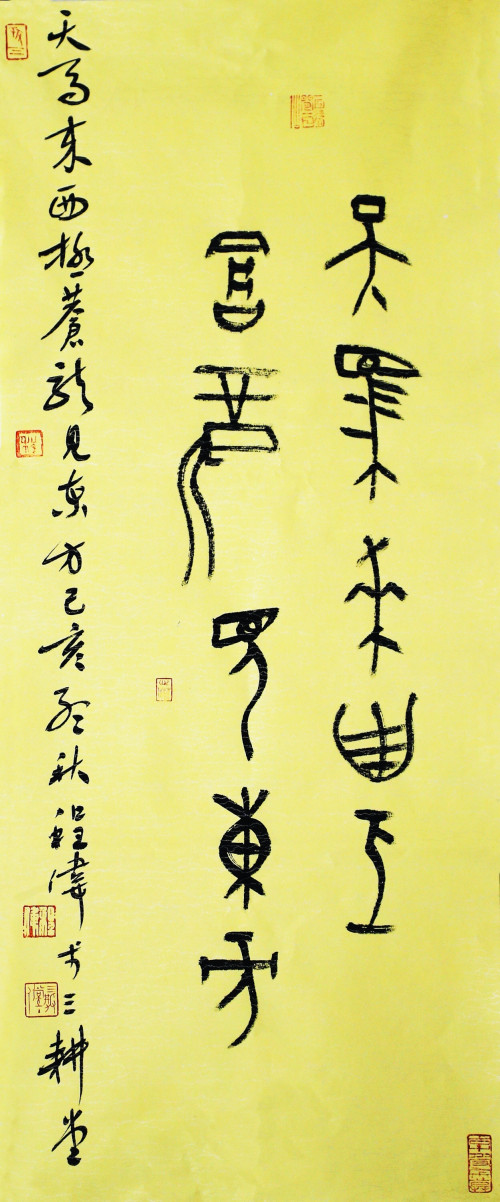 天馬來西極
蒼龍見東方
天馬來西極蒼龍見東方己亥秋程偉於三耕堂